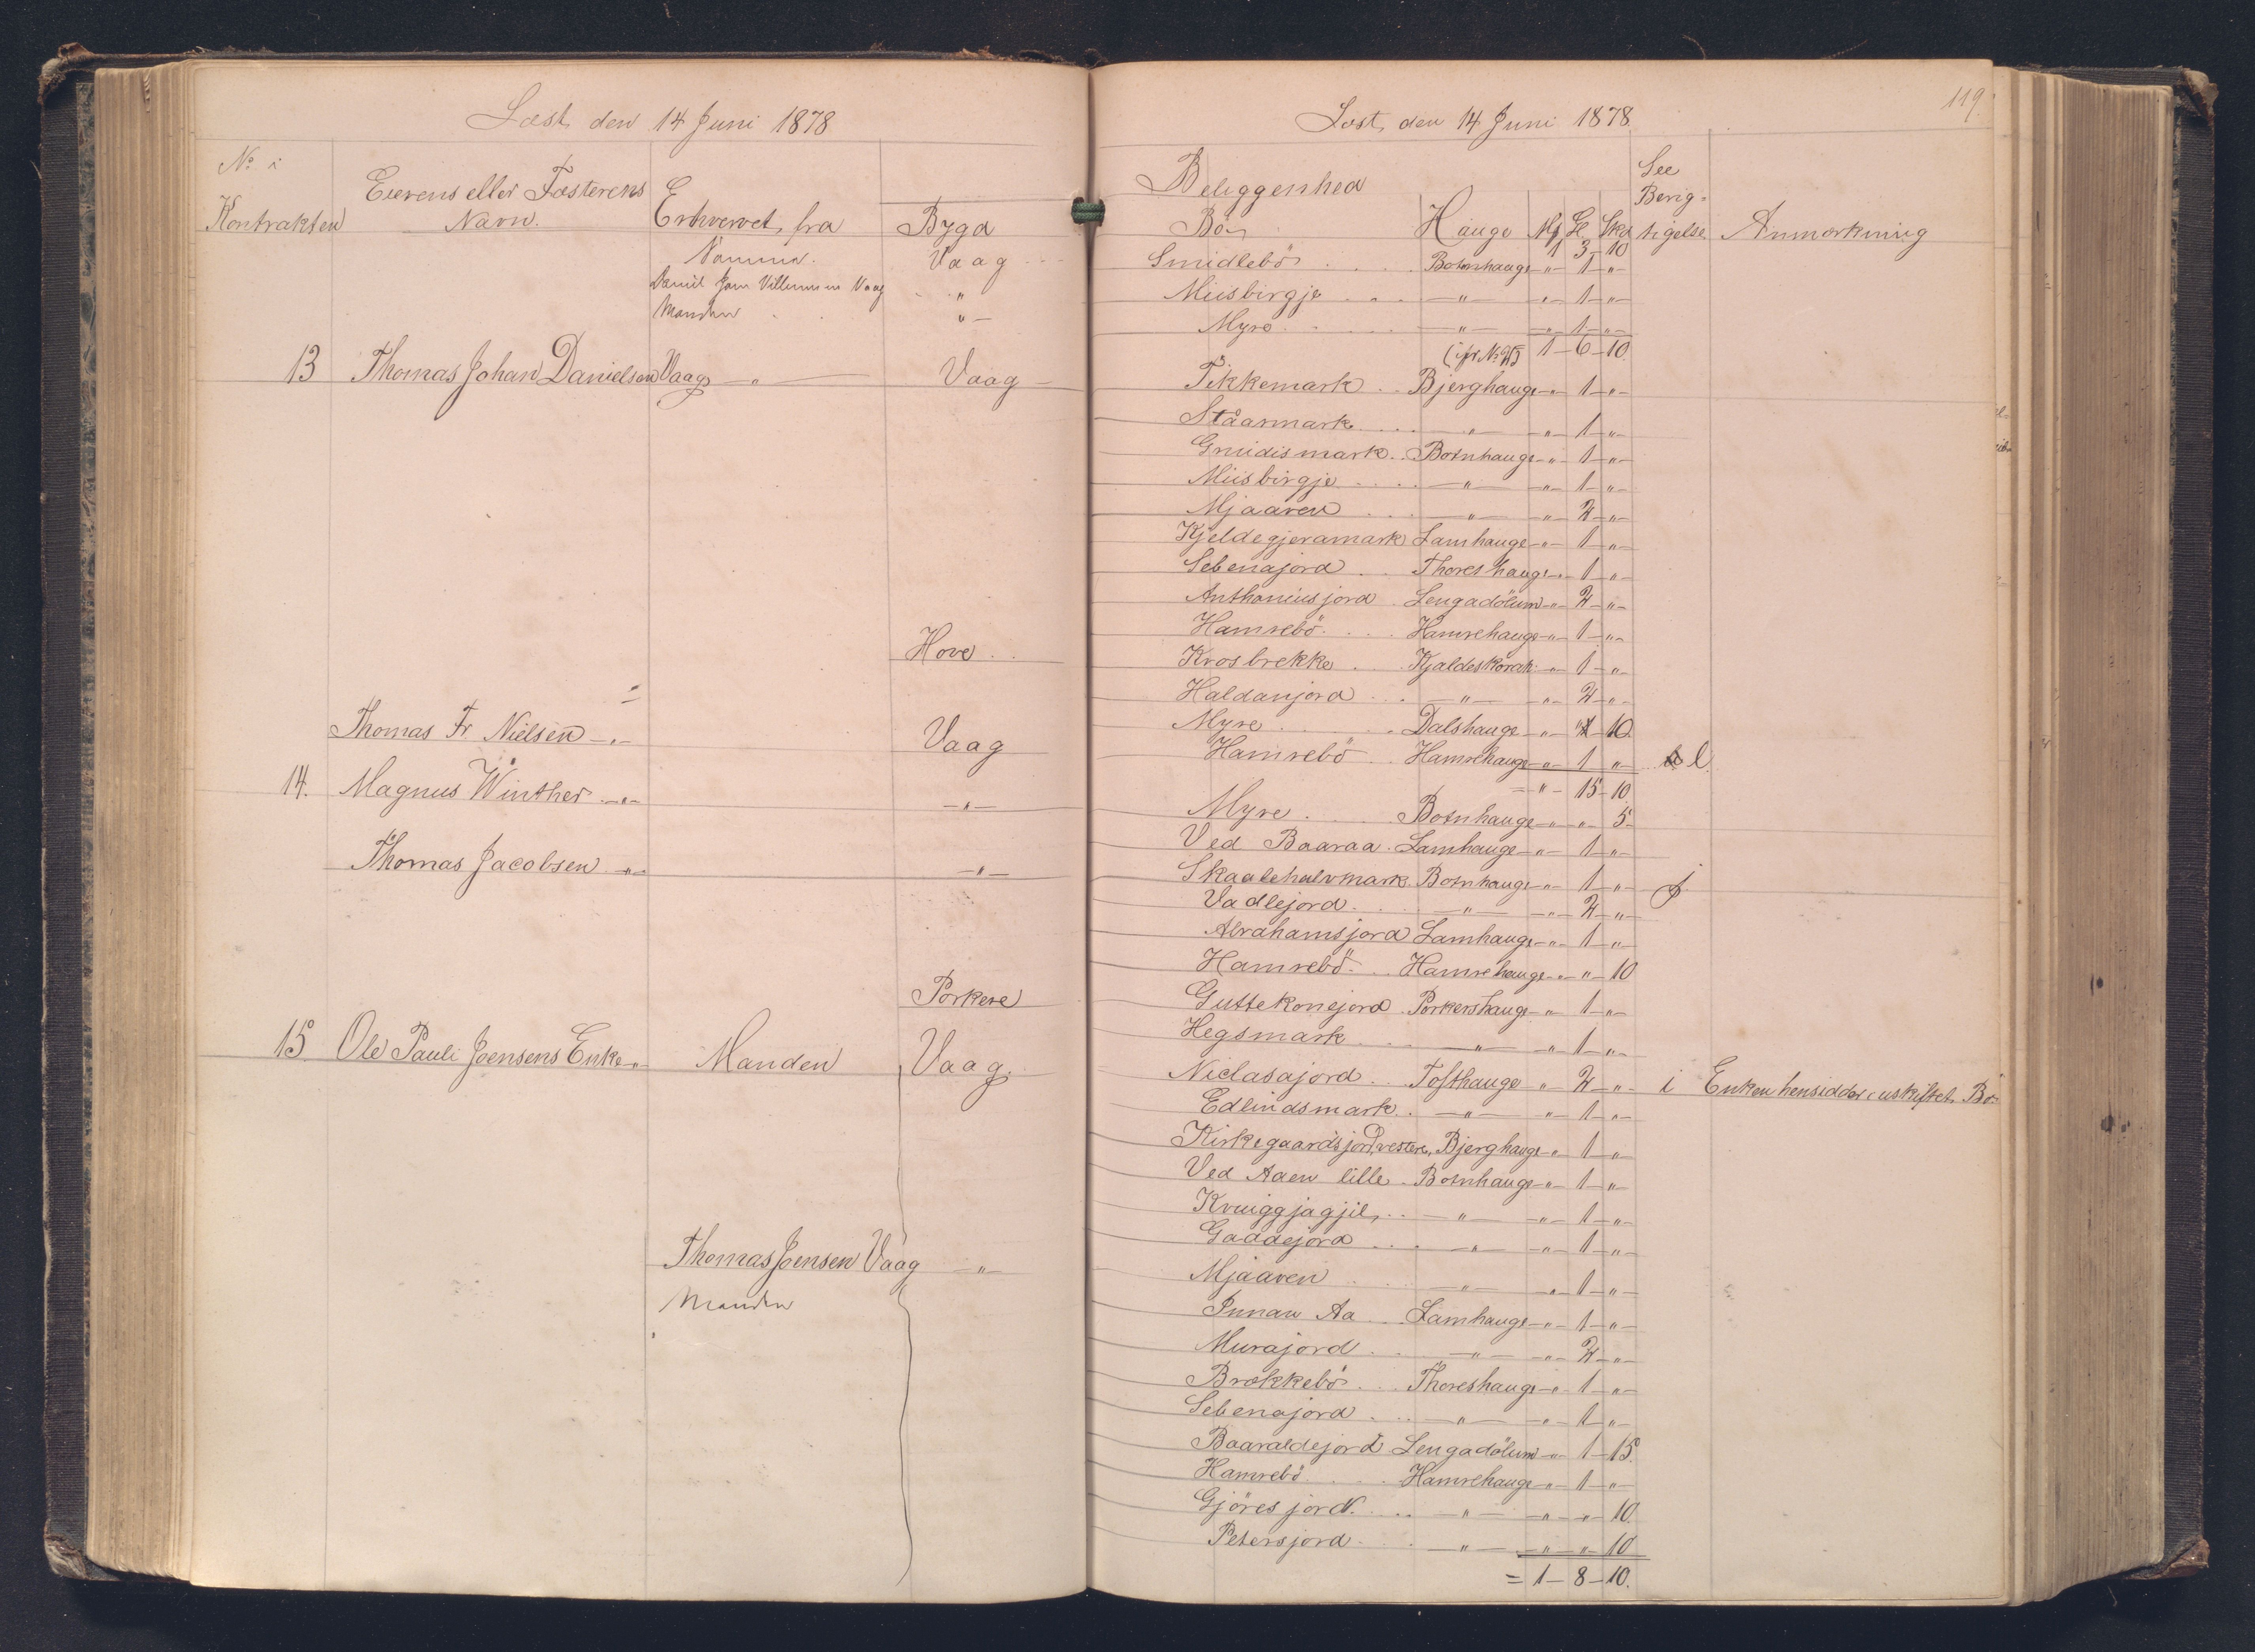 Læst den 14 Juni 1878
No i
Kontrakten
Eierens eller Fæsterens
Navn.
Erhvervet fra
Bygd
Namme.
Vaag
Daniel Joen Villumsen Vaag
"
Manden
" —
13 Thomas Johan Danielsen Vaag — " — Vaag
Hove
Thomas Fr. Nielsen — " — Vaag
14. Magnus Winther — " — — " —
Thomas Jacobsen — " — — " —
Porkere
15 Ole Pauli Joensens Enke — " — Manden Vaag.
Thomas Joensen Vaag — " —
Manden
119.
Læst den 14 Juni 1878
Beliggenhed
See
Berig=
tigelse
Bö
Hauge
Mk
Gl.
Skd
Anmærkning
1 3 - 10
Smidlebö Botnhauge - " - 1 - " -
Miisbirgje — " — - " - 1 - " -
Myre — " — - " - 1 - " -
1 - 6 - 10
Tikkemark Bjerghauge - " - 1 - " -
Stáarmark — " — - " - 1 - " -
Gmidismark Botnhauge - " - 1 - " -
Miisbirgje — " — - " - 1 - " -
Mjaaren — " — - " - 2 - " -
Kjeldegjeramark Lamhauge - " - 1 - " -
Sebenajord Thoreshauge - " - 1 - " -
Anthoniusjord Lengadölum - " - 2 - " -
Hamrebö Hamrehauge - " - 1 - " -
Krosbrekke Kjaldeskorah - " - 1 - " -
Haldanjord — " — - " - 2 - " -
Myre Dalshauge - " - " - 10
Hamrebö Hamrehauge - " - 1 - " - l.
= " - 15 - 10
Myre Botnhauge - " - " - 5
Ved Baaraa Lamhauge - " - 1 - " -
Skaalehalvmark Botnhauge - " - 1 - " - f
Vadlejord — " — - " - 2 - " -
Abrahamsjord Lamhauge - " - 1 - " -
Hamrebö Hamrehauge - " - " - 10
Guttekonejord Porkershauge - " - 1 - " -
Hegsmark — " — - " - 1 - " -
Niclasajord Tofthauge - " - 2 - " - i Enken hensidder i uskiftet Bo
Edlindsmark — " — - " - 1 - " -
Kirkegaardsjord vestere, Bjerghauge - " - 1 - " -
Ved Aaen lille Botnhauge - " - 1 - " -
Kruiggjagjil — " — - " - 1 - " -
Gaddejord — " — - " - 1 - " -
Mjaaren — " — - " - 1 - " -
Innan Aa Lamhauge - " - 1 - " -
Murajord — " — - " - 2 - " -
Brekkebö Thoreshauge - " - 1 - " -
Sebenajord — " — - " - 1 - " -
Baaraldejord Lengadölum - " - 1 - 15
Hamrebö Hamrehauge - " - 1 - " -
Gjöresjord. — " — - " - " - 10
Petersjord — " — - " - " - 10
= 1 - 8 - 10.